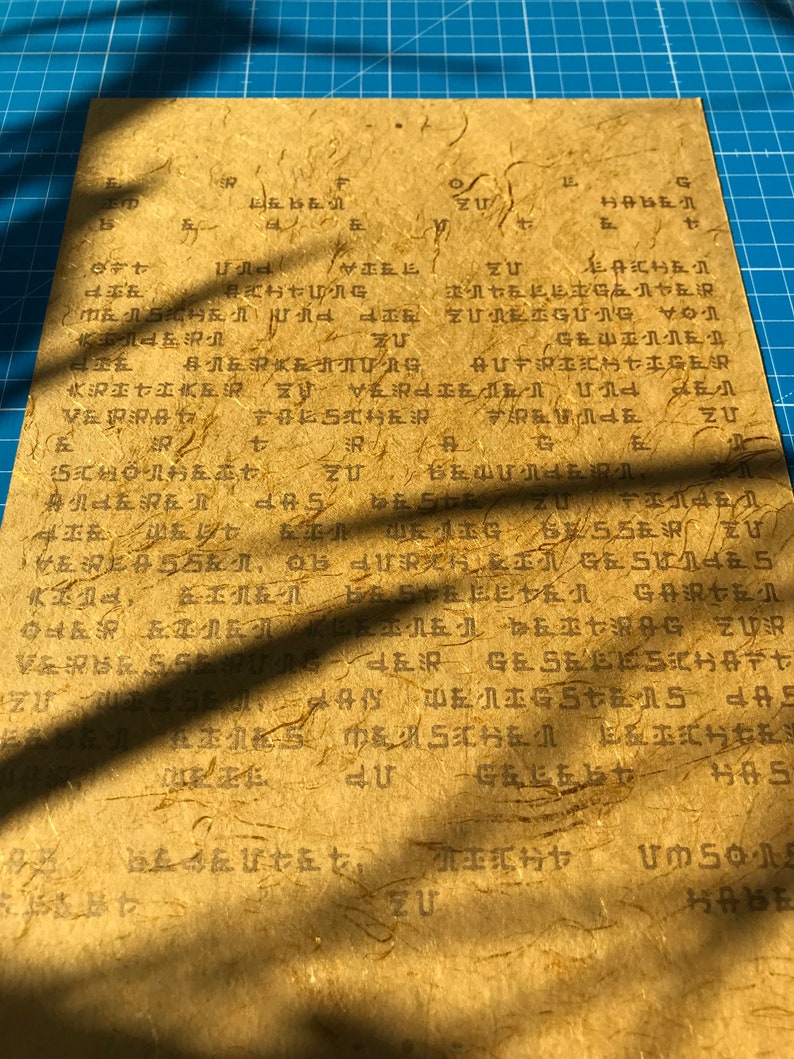 ERFOLG
IM LEBEN ZU HABEN
BEDEUTET
OFT UND VIEL ZU LACHEN
DIE ACHTUNG INTELLIGENTER
MENSCHEN UND DIE ZUNEIGUNG VON
KINDERN ZU GEWINNEN
DIE ANERKENNUNG AUFRICHTIGER
KRITIKER ZU VERDIENEN UND DEN
VERRAT FALSCHER FREUNDE ZU
ERTRAGEN
SCHÖNHEIT ZU BEWUNDERN, IN
ANDEREN DAS BESTE ZU FINDEN
DIE WELT EIN WENIG BESSER ZU
VERLASSEN, OB DURCH EIN GESUNDES
KIND, EINEN BESTELLTEN GARTEN
ODER EINEN KLEINEN BEITRAG ZUR
VERBESSERUNG DER GESELLSCHAFT
ZU WISSEN, DAN WENIGSTENS DAS
LEBEN EINES MENSCHEN LEICHTER
WAR, WEIL DU GELEBT HAS
AS BEDEUTET, NICHT UMSONS
ELEBT ZU HABE